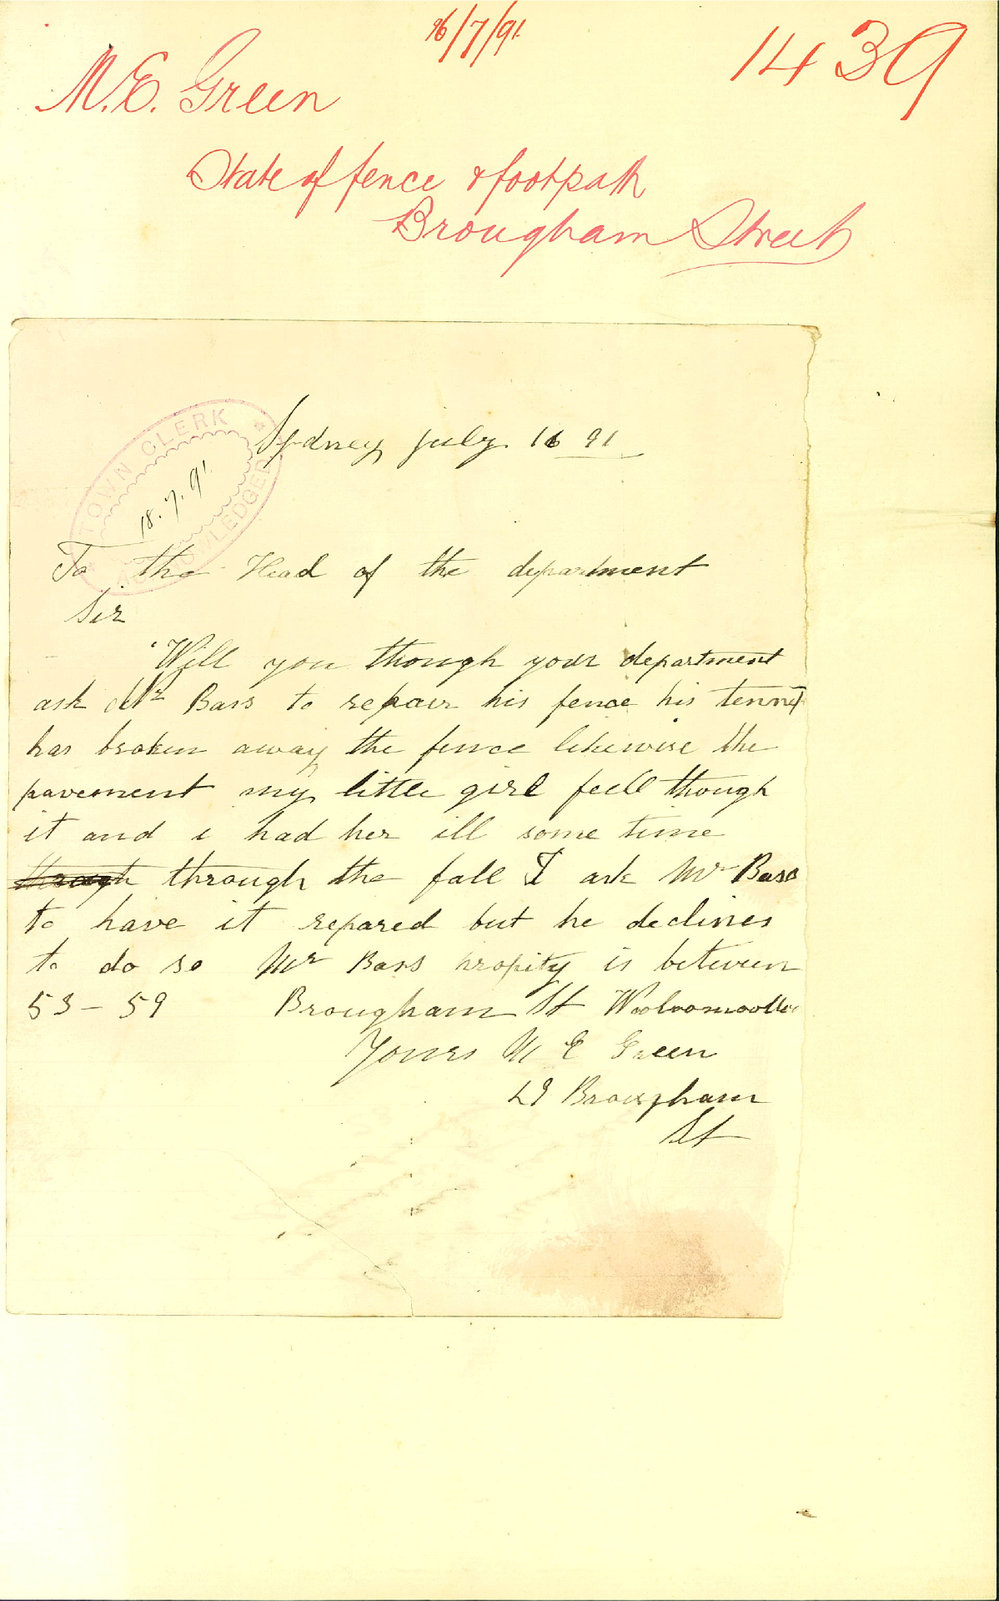 16/7/91
1439
M.E. Green
State of fence & footpath
Brougham Street
TOWN CLERK
18.7.91
ACKNOWLEDGED
Sydney july 16 91
To the Head of the department
Sir
Will you though your department
ask Mr Bass to repair his fence his tennt
has broken away the fence likewise the
pavement my little girl fell though
it and i had her ill some time
through through the fall I ask Mr Bass
to have it repared but he declines
to do so Mr Bass propity is between
53 - 59 Brougham St Wooloomoolloo
Yours M E Green
Brougham
St